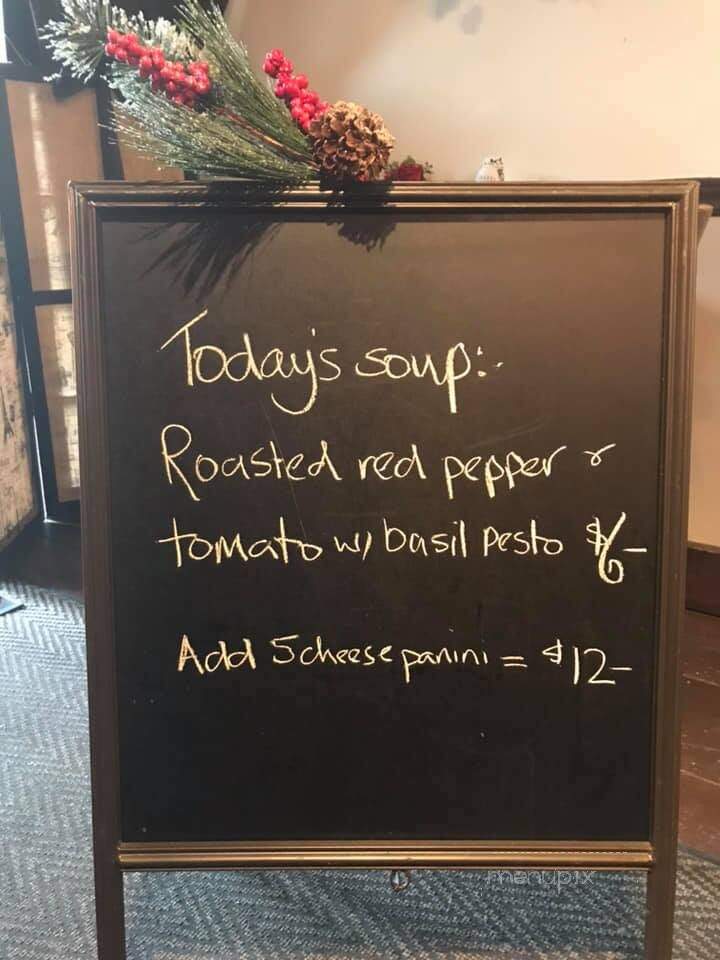 Today's soup:-
Roasted red pepper &
tomato w/ basil pesto $6-
Add 5 cheese panini = $12-
menupix